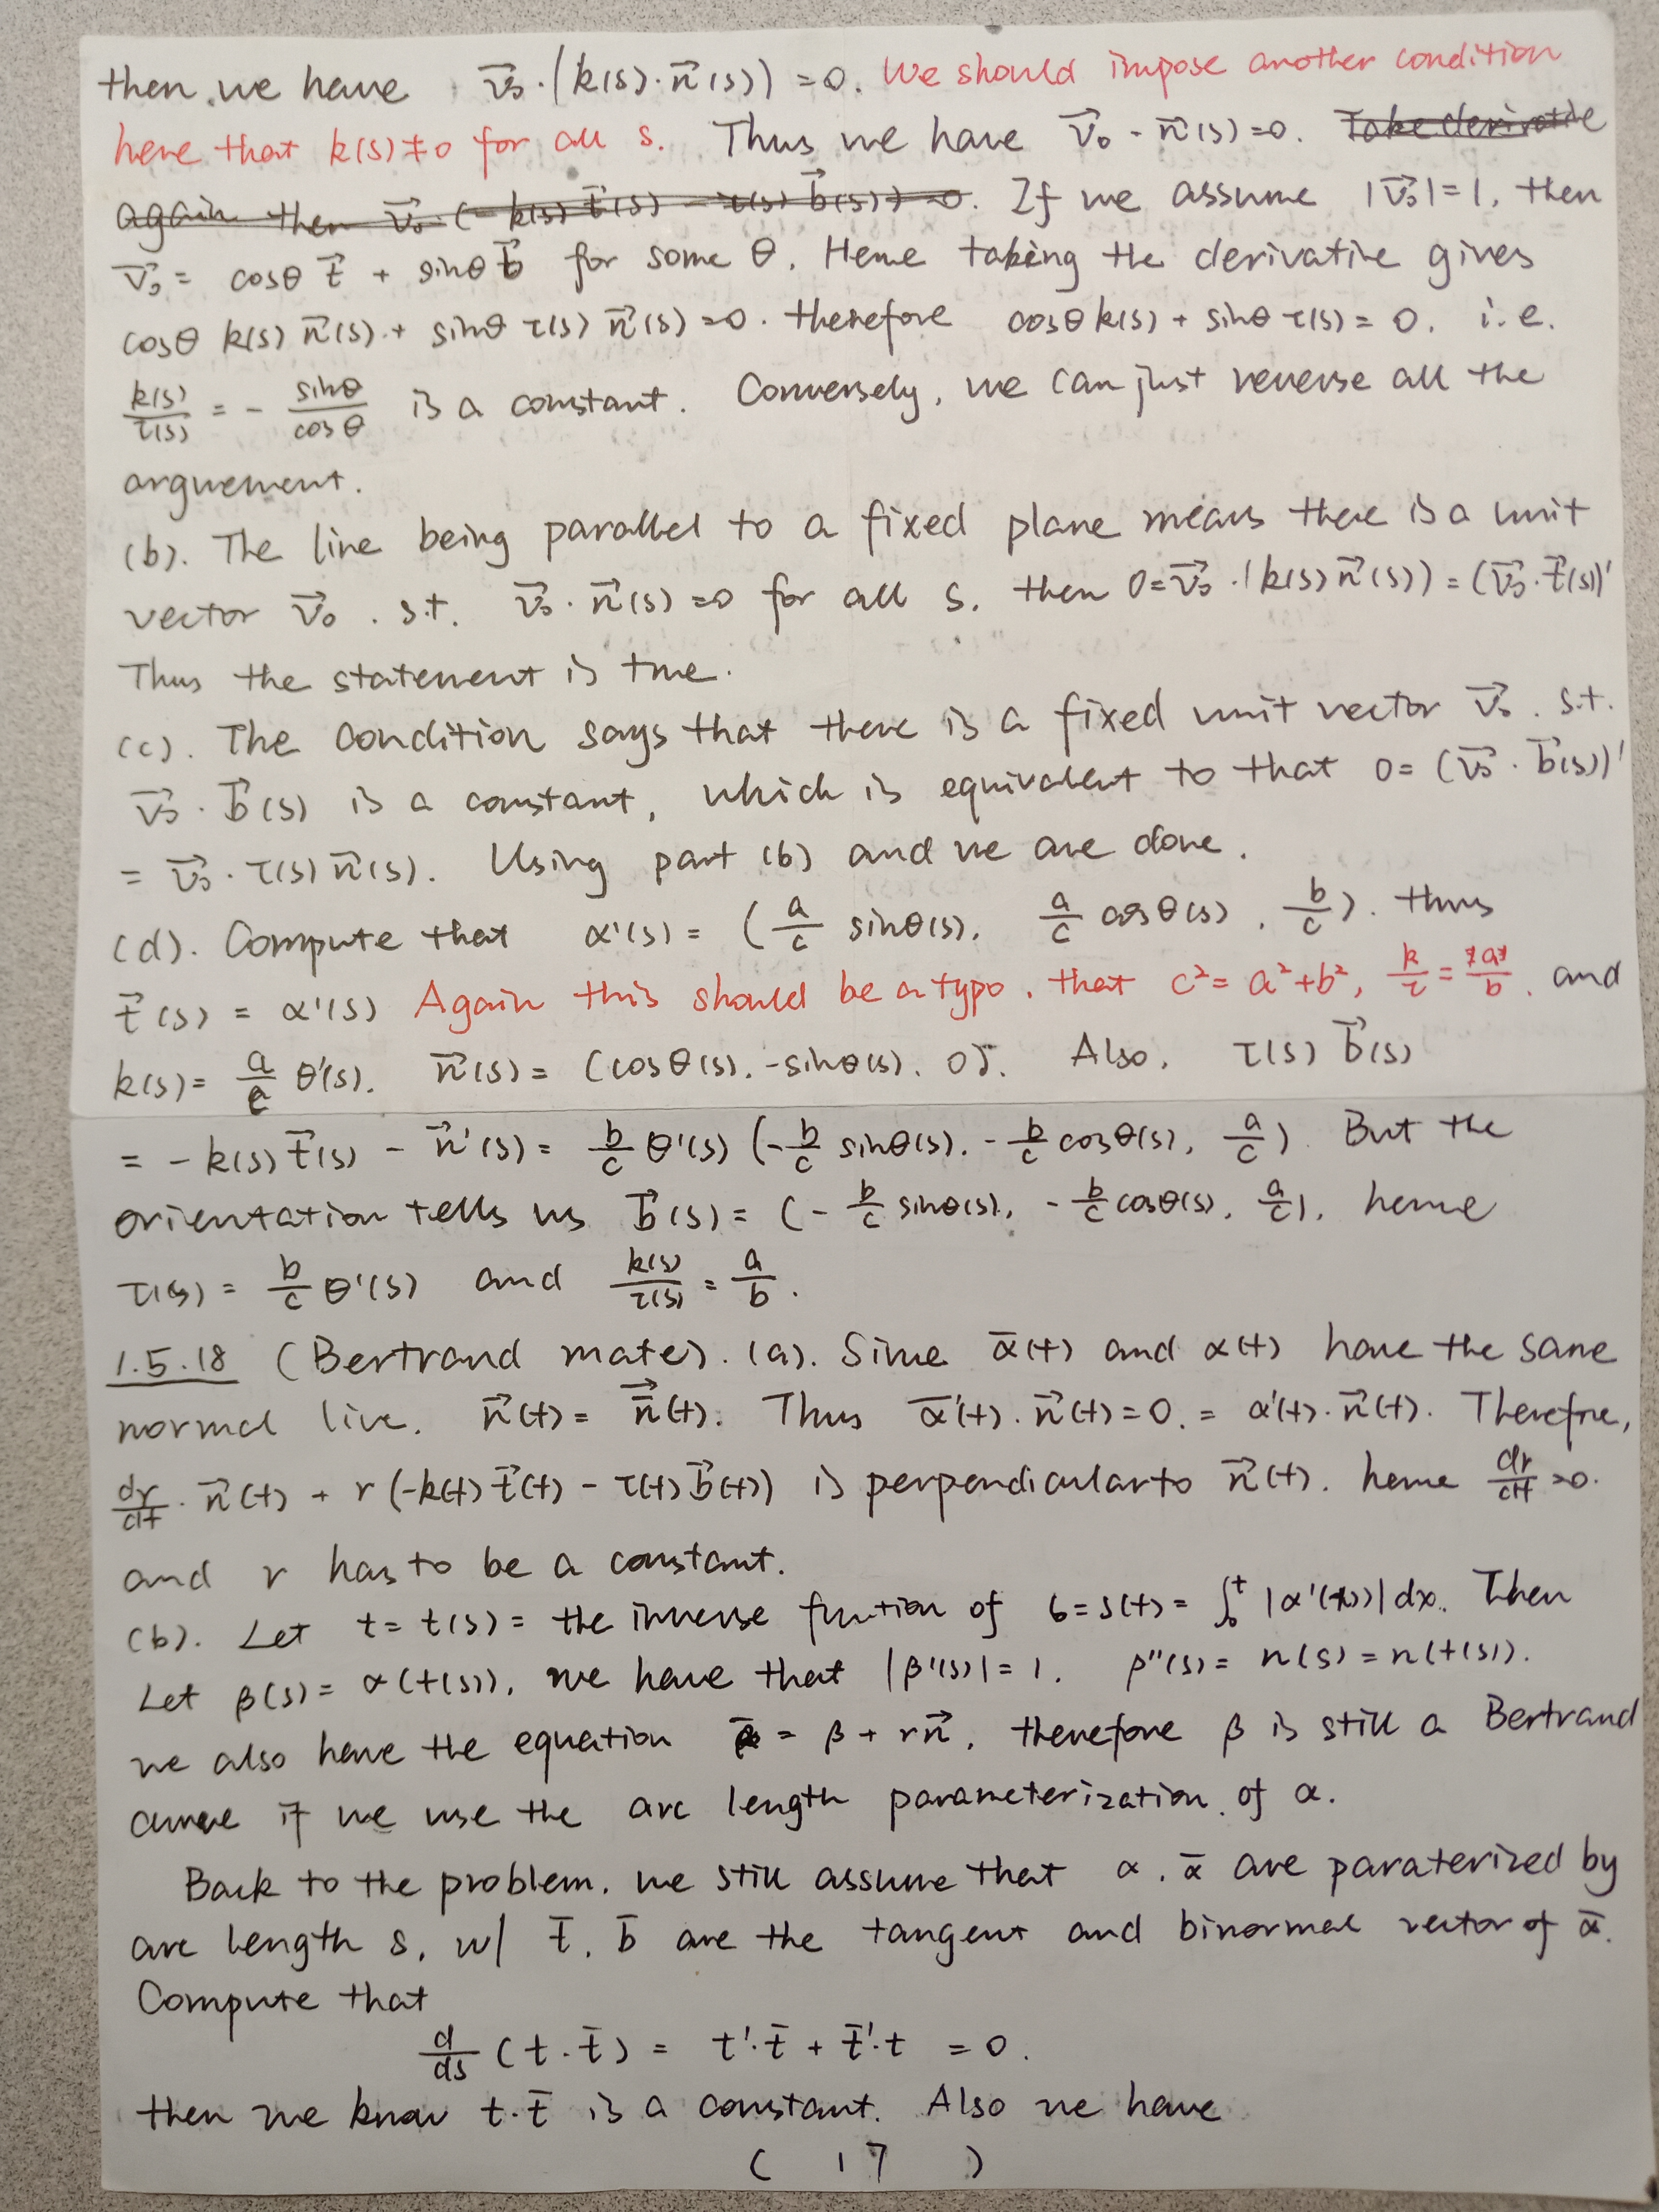 then we have v⃗₀·(k(s)·n⃗(s)) = 0. We should impose another condition
here that k(s)≠0 for all s. Thus we have v⃗₀·n⃗(s)=0. Take derivative
again then v⃗₀·(-k(s)t⃗(s) - τ(s)b⃗(s))=0. If we assume |v⃗₀|=1, then
v⃗₀ = cosθ t⃗ + sinθ b⃗ for some θ. Hence taking the derivative gives
cosθ k(s) n⃗(s) + sinθ τ(s) n⃗(s) = 0. therefore cosθ k(s) + sinθ τ(s) = 0. i.e.
k(s)/τ(s) = - sinθ/cosθ is a constant. Conversely, we can just reverse all the
arguement.
(b). The line being parallel to a fixed plane means there is a unit
vector v⃗₀. s.t. v⃗₀·n⃗(s)=0 for all s. then 0=v⃗₀·(k(s)n⃗(s)) = (v⃗₀·t⃗(s))'
Thus the statement is true.
(c). The condition says that there is a fixed unit vector v⃗₀. s.t.
v⃗₀·b⃗(s) is a constant, which is equivalent to that 0= (v⃗₀·b⃗(s))'
= v⃗₀·τ(s)n⃗(s). Using part (b) and we are done.
(d). Compute that α'(s) = (a/c sinθ(s), a/c cosθ(s), b/c). thus
t⃗(s) = α'(s) Again this should be a typo, that c²=a²+b², k/τ = a/b. and
k(s)= a/c θ'(s). n⃗(s)= (cosθ(s), -sinθ(s), 0). Also, τ(s) b⃗(s)
= -k(s)t⃗(s) - n⃗'(s) = b/c θ'(s) (-b/c sinθ(s), -b/c cosθ(s), a/c). But the
orientation tells us b⃗(s) = (-b/c sinθ(s), -b/c cosθ(s), a/c), hence
τ(s) = b/c θ'(s) and k(s)/τ(s) = a/b.
1.5.18 (Bertrand mate). (a). Since ᾱ(t) and α(t) have the same
normal line. n⃗(t) = n̄⃗(t). Thus ᾱ'(t)·n⃗(t)=0. = α'(t)·n⃗(t). Therefore,
dr/dt·n⃗(t) + r(-k(t)t⃗(t) - τ(t)b⃗(t)) is perpendicular to n⃗(t). hence dr/dt =0.
and r has to be a constant.
(b). Let t = t(s) = the inverse function of s=s(t)= ∫₀ᵗ |α'(x)|dx. Then
Let β(s)= α(t(s)), we have that |β'(s)|=1. β''(s)= n(s) = n(t(s)).
we also have the equation ᾱ = β + rn⃗, therefore β is still a Bertrand
curve if we use the arc length parameterization of α.
Back to the problem. we still assume that α, ᾱ are paraterized by
arc length s, w/ t̄, b̄ are the tangent and binormal vector of ᾱ.
Compute that
d/ds (t·t̄) = t'·t̄ + t̄'·t = 0.
then we know t·t̄ is a constant. Also we have
( 17 )